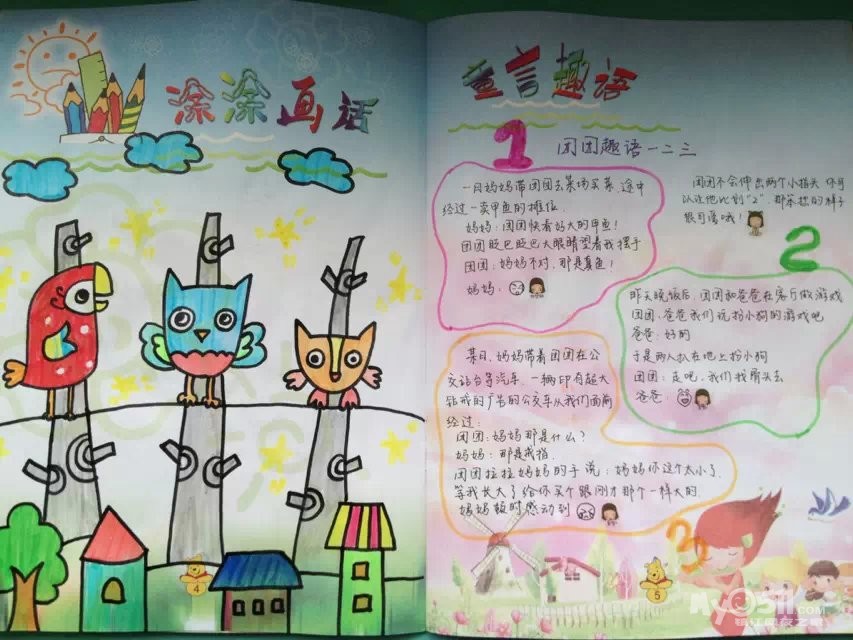 涂涂画话
童言趣语
1
团团趣语一二三
一日妈妈带团团去菜场买菜,途中
经过一卖甲鱼的摊位
妈妈:团团快看好大的甲鱼!
团团眨巴眨巴大眼睛望着我摆手
团团:妈妈不对,那是真鱼!
妈妈:
团团不会伸出两个小指头 你可
以让他比划“2” 那笨拙的样子
很可爱哦!
2
昨天晚饭后,团团和爸爸在客厅做游戏
团团:爸爸我们玩扮小狗的游戏吧
爸爸:好的
于是两人趴在地上扮小狗
团团:走吧,我们找屑头去
爸爸:
某日,妈妈带着团团在公
交站台等汽车,一辆印有超大
钻戒的广告的公交车从我们面前
经过:
团团:妈妈那是什么?
妈妈:那是戒指.
团团拉拉妈妈的手说:妈妈你这个太小了.
等我长大了给你买个跟刚才那个一样大的.
妈妈顿时感动到
3
4
5